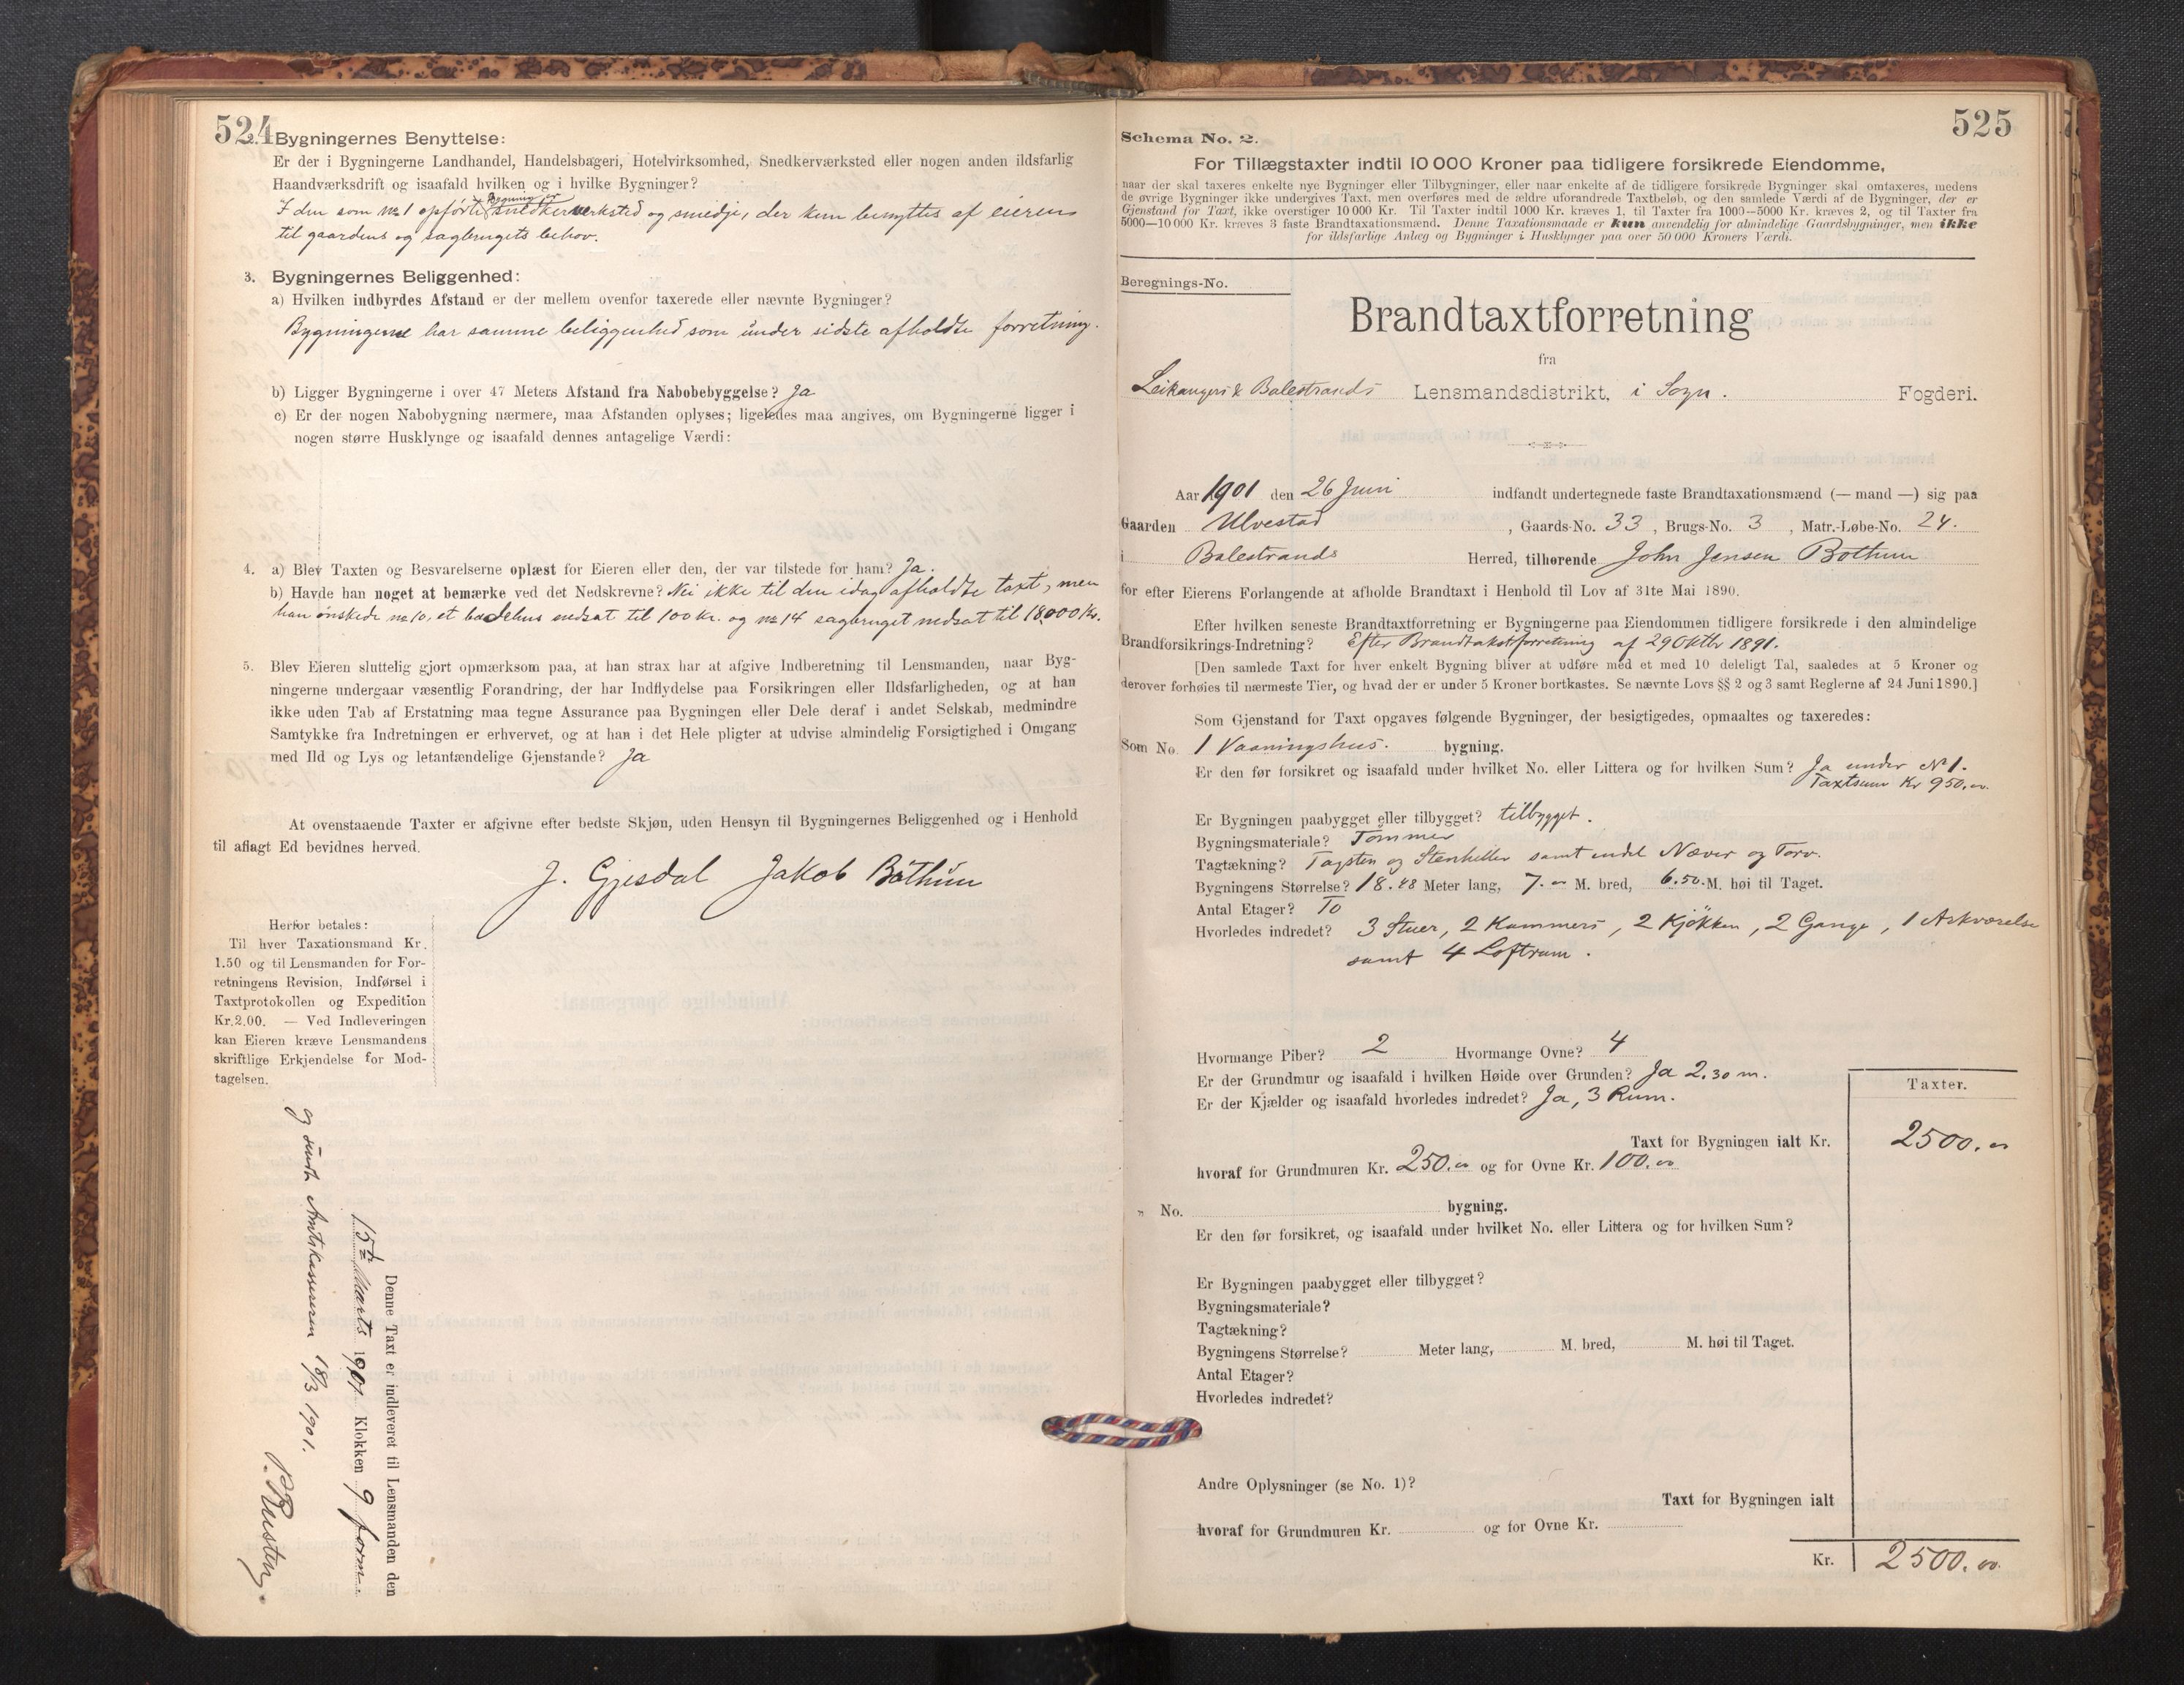 524
2. Bygningernes Benyttelse:
Er der i Bygningerne Landhandel, Handelsbageri, Hotelvirksomhed, Snedkerværksted eller nogen anden ildsfarlig
Haandværksdrift og isaafald hvilken og i hvilke Bygninger?
Bygning er
I den som No 1 opförte snedkerverksted og smedje, der kun benyttes af eieren
til gaardens og sagbrugets behov.
3. Bygningernes Beliggenhed:
a) Hvilken indbyrdes Afstand er der mellem ovenfor taxerede eller nævnte Bygninger?
Bygningerne har samme beliggenhed som under sidste afholdte forretning.
b) Ligger Bygningerne i over 47 Meters Afstand fra Nabobebyggelse? Ja
c) Er der nogen Nabobygning nærmere, maa Afstanden oplyses; ligeledes maa angives, om Bygningerne ligger i
nogen større Husklynge og isaafald dennes antagelige Værdi:
4. a) Blev Taxten og Besvarelserne oplæst for Eieren eller den, der var tilstede for ham? Ja.
b) Havde han noget at bemærke ved det Nedskrevne? Nei ikke til den idag afholdte taxt, men
han önskede No 10, et badehus nedsat til 100 kr. og No 14 sagbruget nedsat til 18000 Kr.
5. Blev Eieren sluttelig gjort opmærksom paa, at han strax har at afgive Indberetning til Lensmanden, naar Byg-
ningerne undergaar væsentlig Forandring, der har Indflydelse paa Forsikringen eller Ildsfarligheden, og at han
ikke uden Tab af Erstatning maa tegne Assurance paa Bygningen eller Dele deraf i andet Selskab, medmindre
Samtykke fra Indretningen er erhvervet, og at han i det Hele pligter at udvise almindelig Forsigtighed i Omgang
med Ild og Lys og letantændelige Gjenstande? Ja
At ovenstaaende Taxter er afgivne efter bedste Skjøn, uden Hensyn til Bygningernes Beliggenhed og i Henhold
til aflagt Ed bevidnes herved.
J. Gjesdal Jakob Böthun
Herfor betales:
Til hver Taxationsmand Kr.
1.50 og til Lensmanden for For-
retningens Revision, Indførsel i
Taxtprotokollen og Expedition
Kr. 2.00. — Ved Indleveringen
kan Eieren kræve Lensmandens
skriftlige Erkjendelse for Mod-
tagelsen.
Denne Taxt er indleveret til Lensmanden den
15de Marts 1901 Klokken 9 form.
og sendt Amtskassereren 18/3 1901.
525
Schema No. 2.
For Tillægstaxter indtil 10 000 Kroner paa tidligere forsikrede Eiendomme,
naar der skal taxeres enkelte nye Bygninger eller Tilbygninger, eller naar enkelte af de tidligere forsikrede Bygninger skal omtaxeres, medens
de øvrige Bygninger ikke undergives Taxt, men overføres med de ældre uforandrede Taxtbeløb, og den samlede Værdi af de Bygninger, der er
Gjenstand for Taxt, ikke overstiger 10 000 Kr. Til Taxter indtil 1000 Kr. kræves 1, til Taxter fra 1000—5000 Kr. kræves 2, og til Taxter fra
5000—10 000 Kr. kræves 3 faste Brandtaxationsmænd. Denne Taxationsmaade er kun anvendelig for almindelige Gaardsbygninger, men ikke
for ildsfarlige Anlæg og Bygninger i Husklynger paa over 50 000 Kroners Værdi.
Beregnings-No.
Brandtaxtforretning
fra
Leikangers & Balestrands Lensmandsdistrikt, i Sogn. Fogderi.
Aar 1901 den 26 Juni indfandt undertegnede faste Brandtaxationsmænd (— mand —) sig paa
Gaarden Ulvestad, Gaards-No. 33, Brugs-No. 3, Matr.-Løbe-No. 24.
i Balestrands Herred, tilhørende John Jensen Bøthun
for efter Eierens Forlangende at afholde Brandtaxt i Henhold til Lov af 31te Mai 1890.
Efter hvilken seneste Brandtaxtforretning er Bygningerne paa Eiendommen tidligere forsikrede i den almindelige
Brandforsikrings-Indretning? Efter Brandtakstforretning af 29 Oktbr 1891.
[Den samlede Taxt for hver enkelt Bygning bliver at udføre med et med 10 deleligt Tal, saaledes at 5 Kroner og
derover forhøies til nærmeste Tier, og hvad der er under 5 Kroner bortkastes. Se nævnte Lovs §§ 2 og 3 samt Reglerne af 24 Juni 1890.]
Som Gjenstand for Taxt opgaves følgende Bygninger, der besigtigedes, opmaaltes og taxeredes:
Som No. 1 Vaaningshus. bygning.
Er den før forsikret og isaafald under hvilket No. eller Littera og for hvilken Sum? Ja under No 1.
Taxtsum Kr 950.00.
Er Bygningen paabygget eller tilbygget? tilbygget.
Bygningsmateriale? Tömmer
Tagtækning? Tagsten og Stenheller samt endel Næver og Torv.
Bygningens Størrelse? 18.48 Meter lang, 7.00 M. bred, 6.50 M. høi til Taget.
Antal Etager? To
Hvorledes indredet? 3 Stuer, 2 Kammers, 2 Kjökken, 2 Gange, 1 Arkværelse
samt 4 Loftrum.
Hvormange Piber? 2 Hvormange Ovne? 4
Er der Grundmur og isaafald i hvilken Høide over Grunden? Ja 2.30 m.
Er der Kjælder og isaafald hvorledes indredet? Ja, 3 Rum.
Taxter.
Taxt for Bygningen ialt Kr. 2500.00
hvoraf for Grundmuren Kr. 250.00 og for Ovne Kr. 100.00
" No. bygning.
Er den før forsikret, og isaafald under hvilket No. eller Littera og for hvilken Sum?
Er Bygningen paabygget eller tilbygget?
Bygningsmateriale?
Tagtækning?
Bygningens Størrelse? Meter lang, M. bred, M. høi til Taget.
Antal Etager?
Hvorledes indredet?
Andre Oplysninger (se No. 1)?
Taxt for Bygningen ialt
hvoraf for Grundmuren Kr. og for Ovne Kr.
Kr. 2500.00.